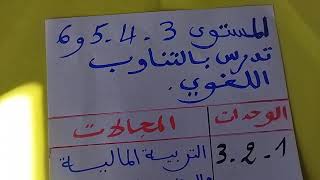 المستوى 3-4-5 و6
تدرس بالتناوب
اللغوي
الوحدات المجالات
1-2-3 التربية المالية